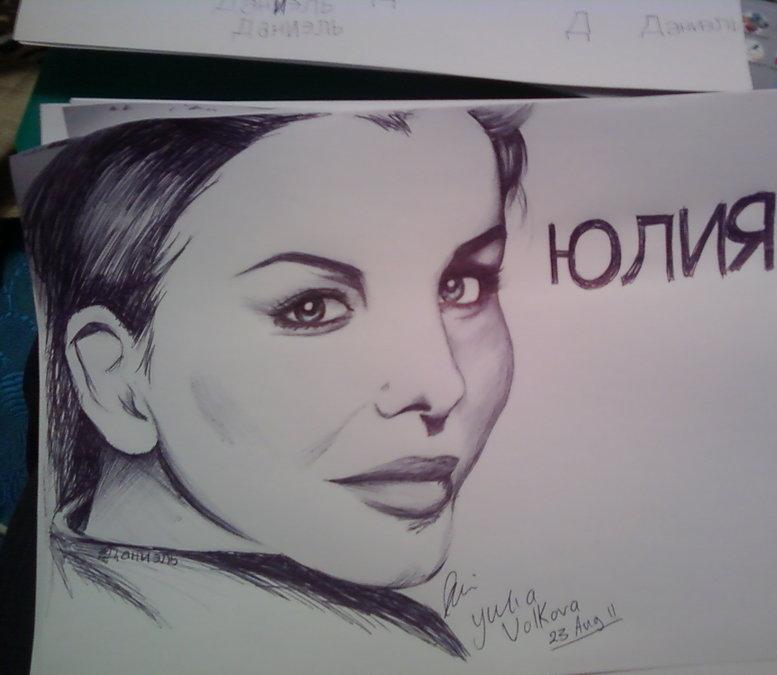 Даниэль
Даниэль
Д Даниэль
ЮЛИЯ
Даниэль
yulia
Volkova
23 Aug 11